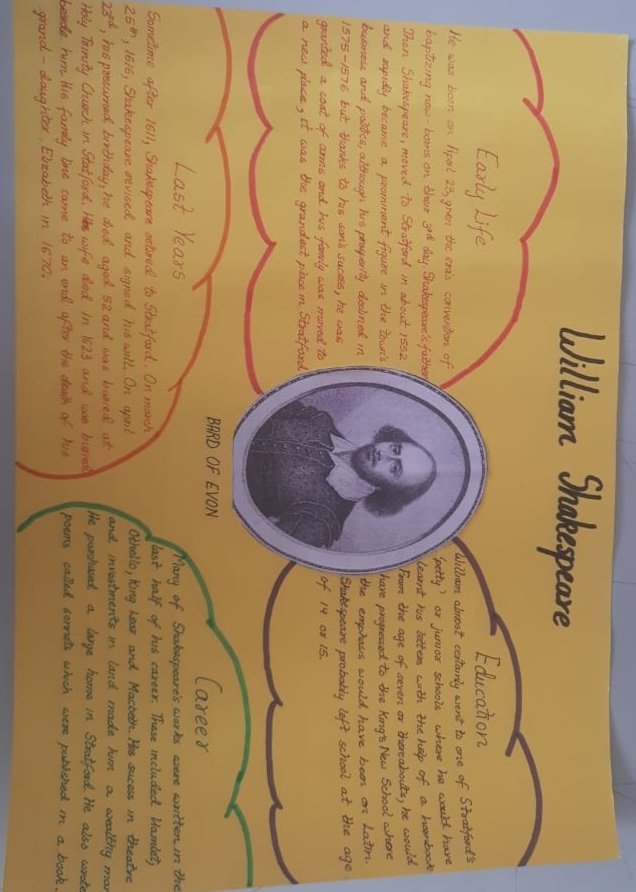 William Shakespeare
Early Life
He was born on April 23, given the era's convention of
baptizing new borns on their 3rd day. Shakespeare's father
Then Shakespeare, moved to Stratford in about 1552
and rapidly became a prominent figure in the town's
business and politics, although his property declined in
1575-1576 but thanks to his son's sucess, he was
granted a coat of arms and his family was moved to
a new place, it was the grandest place in Stratford
Education
William almost certainly went to one of Stratford's
'petty' or junior schools where he would have
learnt his letters with the help of a hornbook
From the age of seven or thereabouts, he would
have progressed to the King's New School where
the emphasis would have been on Latin.
Shakespeare probably left school at the age
of 14 or 15.
BARD OF EVON
Last Years
Sometime after 1611, Shakespeare retired to Stratford. On march
25th, 1616, Shakespeare revised and signed his will. On april
23rd, his presumed birthday, he died aged 52 and was buried at
Holy Trinity Church in Statford. His wife died in 1623 and was buried
beside him. His family line came to an end after the death of his
grand-daughter Elizabeth in 1670.
Career
Many of Shakespeare's works were written in the
last half of his career. These included Hamlet,
Othello, King Lear and Macbeth. His sucess in theatre
and investments in land made him a wealthy man
He purchased a large home in Stratford. He also wrote
poems called sonnets which were published in a book.